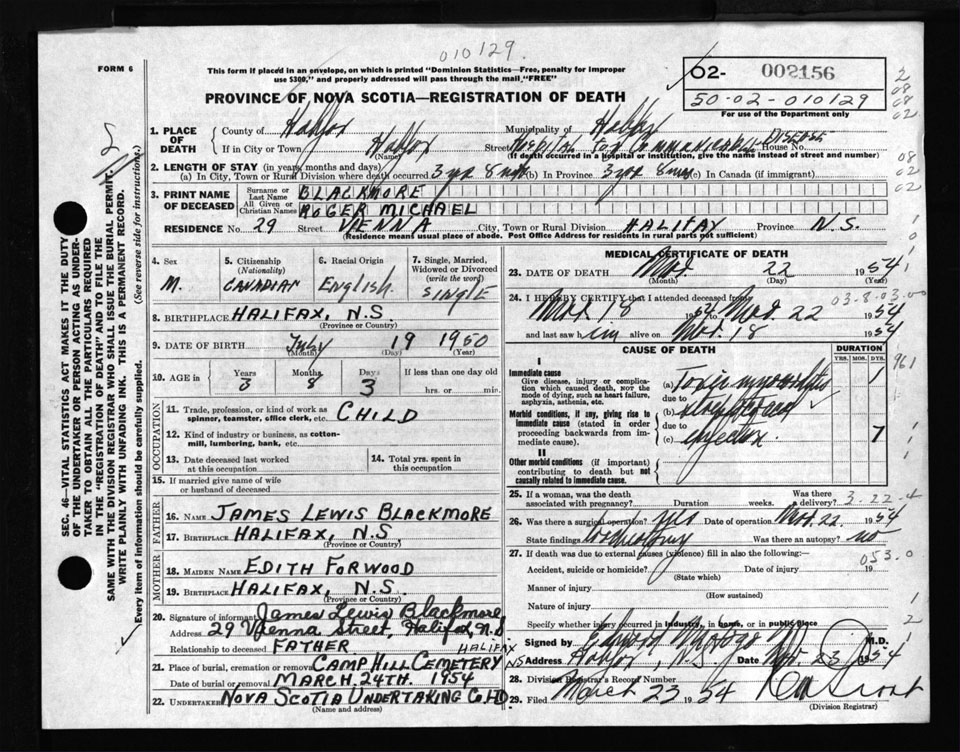 010129.
FORM 6
This form if placed in an envelope, on which is printed "Dominion Statistics—Free, penalty for improper
use $300," and properly addressed will pass through the mail "FREE"
02- 002156
50-02-010129
For use of the Department only
PROVINCE OF NOVA SCOTIA—REGISTRATION OF DEATH
1. PLACE OF DEATH
County of Halifax Municipality of Halifax
If in City or Town Halifax Street Hospital For Communicable DISEASE House No.
(Name) (If death occurred in a hospital or institution, give the name instead of street and number)
2. LENGTH OF STAY (in years, months and days)
(a) In City, Town or Rural Division where death occurred 3 yrs 8 mos (b) In Province 3 yrs 8 mos (c) In Canada (if immigrant)
3. PRINT NAME OF DECEASED
Surname or Last Name BLACKMORE
All Given or Christian Names ROGER MICHAEL
RESIDENCE No. 29 Street VIENNA City, Town or Rural Division HALIFAX Province N.S.
(Residence means usual place of abode. Post Office Address for residents in rural parts not sufficient)
4. Sex M.
5. Citizenship (Nationality) CANADIAN
6. Racial Origin English.
7. Single, Married, Widowed or Divorced (write the word) SINGLE
8. BIRTHPLACE HALIFAX, N.S.
(Province or Country)
9. DATE OF BIRTH July 19 1950
(Month) (Day) (Year)
10. AGE in Years 3 Months 8 Days 3 If less than one day old
hrs. or min.
OCCUPATION
11. Trade, profession, or kind of work as
spinner, teamster, office clerk, etc. CHILD
12. Kind of industry or business, as cotton-
mill, lumbering, bank, etc.
13. Date deceased last worked
at this occupation
14. Total yrs. spent in
this occupation
15. If married give name of wife
or husband of deceased
FATHER
16. NAME JAMES LEWIS BLACKMORE
17. BIRTHPLACE HALIFAX, N.S
(Province or Country)
MOTHER
18. MAIDEN NAME EDITH FORWOOD
19. BIRTHPLACE HALIFAX, N.S.
(Province or Country)
20. Signature of informant James Lewis Blackmore
Address 29 Vienna Street, Halifax, N.S
Relationship to deceased FATHER
21. Place of burial, cremation or removal CAMP HILL CEMETERY HALIFAX NS
Date of burial or removal MARCH. 24TH. 1954
22. UNDERTAKER NOVA SCOTIA UNDERTAKING CO. LTD
(Name and address)
MEDICAL CERTIFICATE OF DEATH
23. DATE OF DEATH Mar. 22 1954
(Month) (Day) (Year)
24. I HEREBY CERTIFY that I attended deceased from 03-8.03.00
Mar 18 1954, Mar. 22 1954
and last saw him alive on Mar. 18 1954
CAUSE OF DEATH
DURATION
YRS. MOS. DYS.
961
I
Immediate cause
Give disease, injury or complica-
tion which caused death, not the
mode of dying, such as heart failure,
asphyxia, asthenia, etc.
(a) Toxic myocarditis 1
due to
Morbid conditions, if any, giving rise to
immediate cause (stated in order
proceeding backwards from im-
mediate cause).
(b)
due to
(c) infection. 7
II
Other morbid conditions (if important)
contributing to death but not
causally related to immediate cause.
25. If a woman, was the death
associated with pregnancy? Duration weeks. Was there a delivery? 3.22.4
26. Was there a surgical operation? yes Date of operation Mar. 22 1954
State findings Was there an autopsy? no
27. If death was due to external causes (violence) fill in also the following:— 053.0
Accident, suicide or homicide? Date of injury 19
(State which)
Manner of injury
(How sustained)
Nature of injury
Specify whether injury occurred in industry, in home, or in public place
Signed by M.D.
Address Halifax, N.S. Date Mar. 23 1954
28. Division Registrar's Record Number
29. Filed March 23 1954
(Division Registrar)
SEC. 46—VITAL STATISTICS ACT MAKES IT THE DUTY
OF THE UNDERTAKER OR PERSON ACTING AS UNDER-
TAKER TO OBTAIN ALL THE PARTICULARS REQUIRED
IN THE "REGISTRATION OF DEATH" AND TO FILE THE
SAME WITH THE DIVISION REGISTRAR WHO SHALL ISSUE THE BURIAL PERMIT.
WRITE PLAINLY WITH UNFADING INK. THIS IS A PERMANENT RECORD.
Every item of information should be carefully supplied. (See reverse side for instructions.)